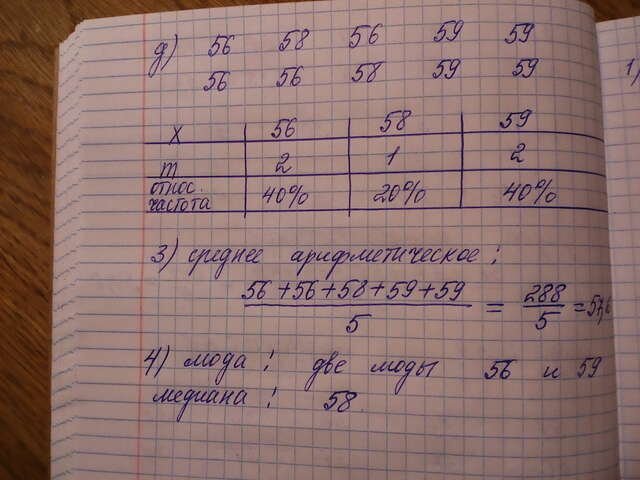 д) 56 58 56 59 59
56 56 58 59 59
x 56 58 59
m 2 1 2
относ. частота 40% 20% 40%
3) среднее арифметическое:
56+56+58+59+59 / 5 = 288 / 5 = 57,6
4) мода: две моды 56 и 59
медиана: 58.
1)